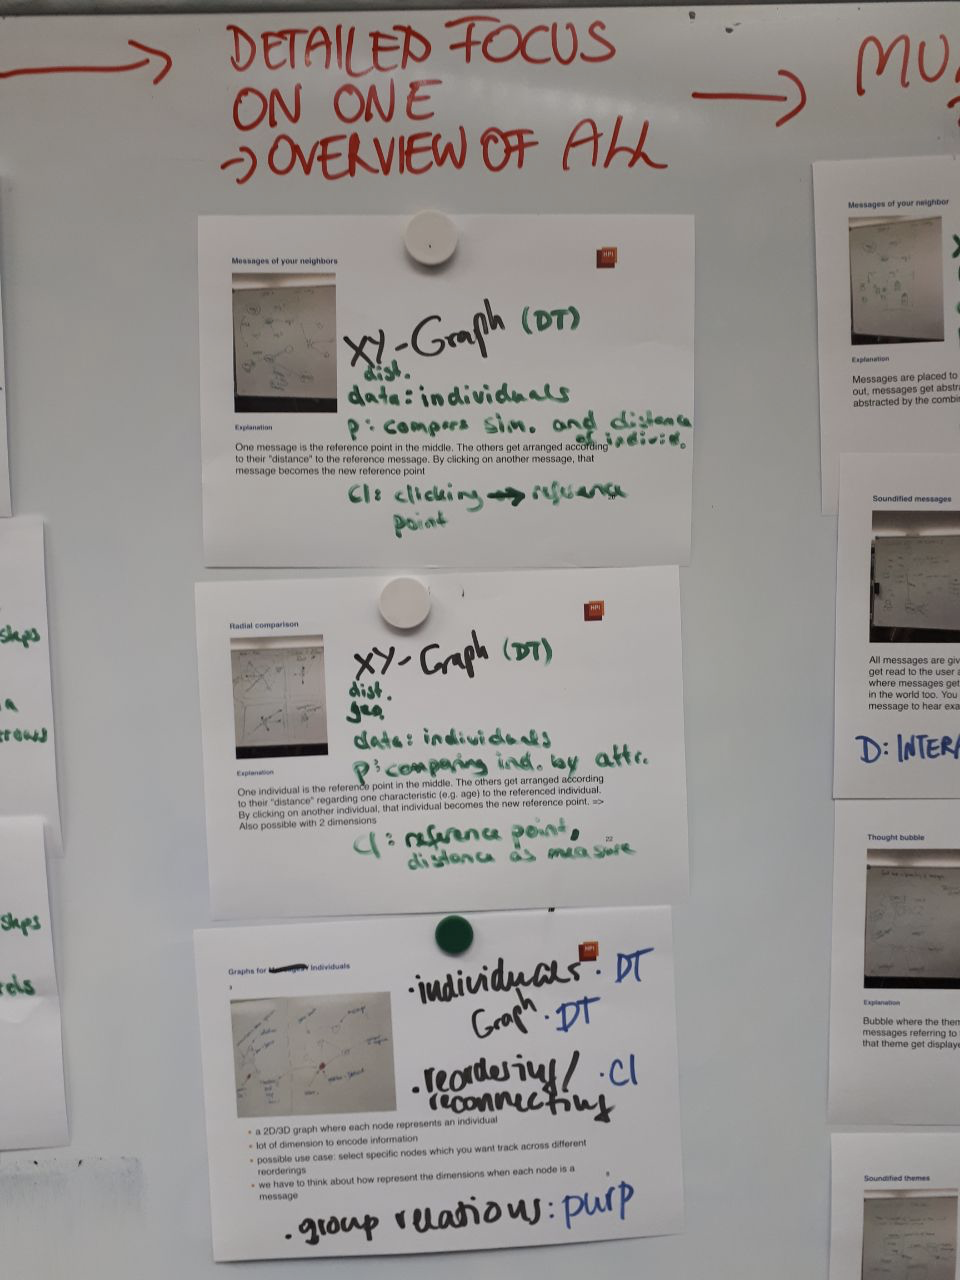 DETAILED FOCUS
ON ONE
→ OVERVIEW OF ALL
MU
Messages of your neighbors
HPI
XY-Graph (DT)
dist.
data: individuals
p: compare sim. and distance
of individ.
Explanation
One message is the reference point in the middle. The others get arranged according
to their "distance" to the reference message. By clicking on another message, that
message becomes the new reference point
CI: clicking → reference
point
Radial comparison
HPI
XY-Graph (DT)
dist.
geo.
data: individuals
p: comparing ind. by attr.
Explanation
One individual is the reference point in the middle. The others get arranged according
to their "distance" regarding one characteristic (e.g. age) to the referenced individual.
By clicking on another individual, that individual becomes the new reference point. =>
Also possible with 2 dimensions
22
CI: reference point,
distance as measure
Graphs for Individuals
HPI
· individuals · DT
Graph · DT
· reordering/ · CI
reconnecting
• a 2D/3D graph where each node represents an individual
• lot of dimension to encode information
• possible use case: select specific nodes which you want track across different
reorderings
• we have to think about how represent the dimensions when each node is a
message
· group relations: purp
Messages of your neighbor
Explanation
Messages are placed to
out, messages get abstra
abstracted by the combin
Soundified messages
All messages are giv
get read to the user a
where messages get
in the world too. You
message to hear exa
D: INTERA
Thought bubble
Explanation
Bubble where the them
messages referring to
that theme get displaye
Soundified themes
steps
rrows
steps